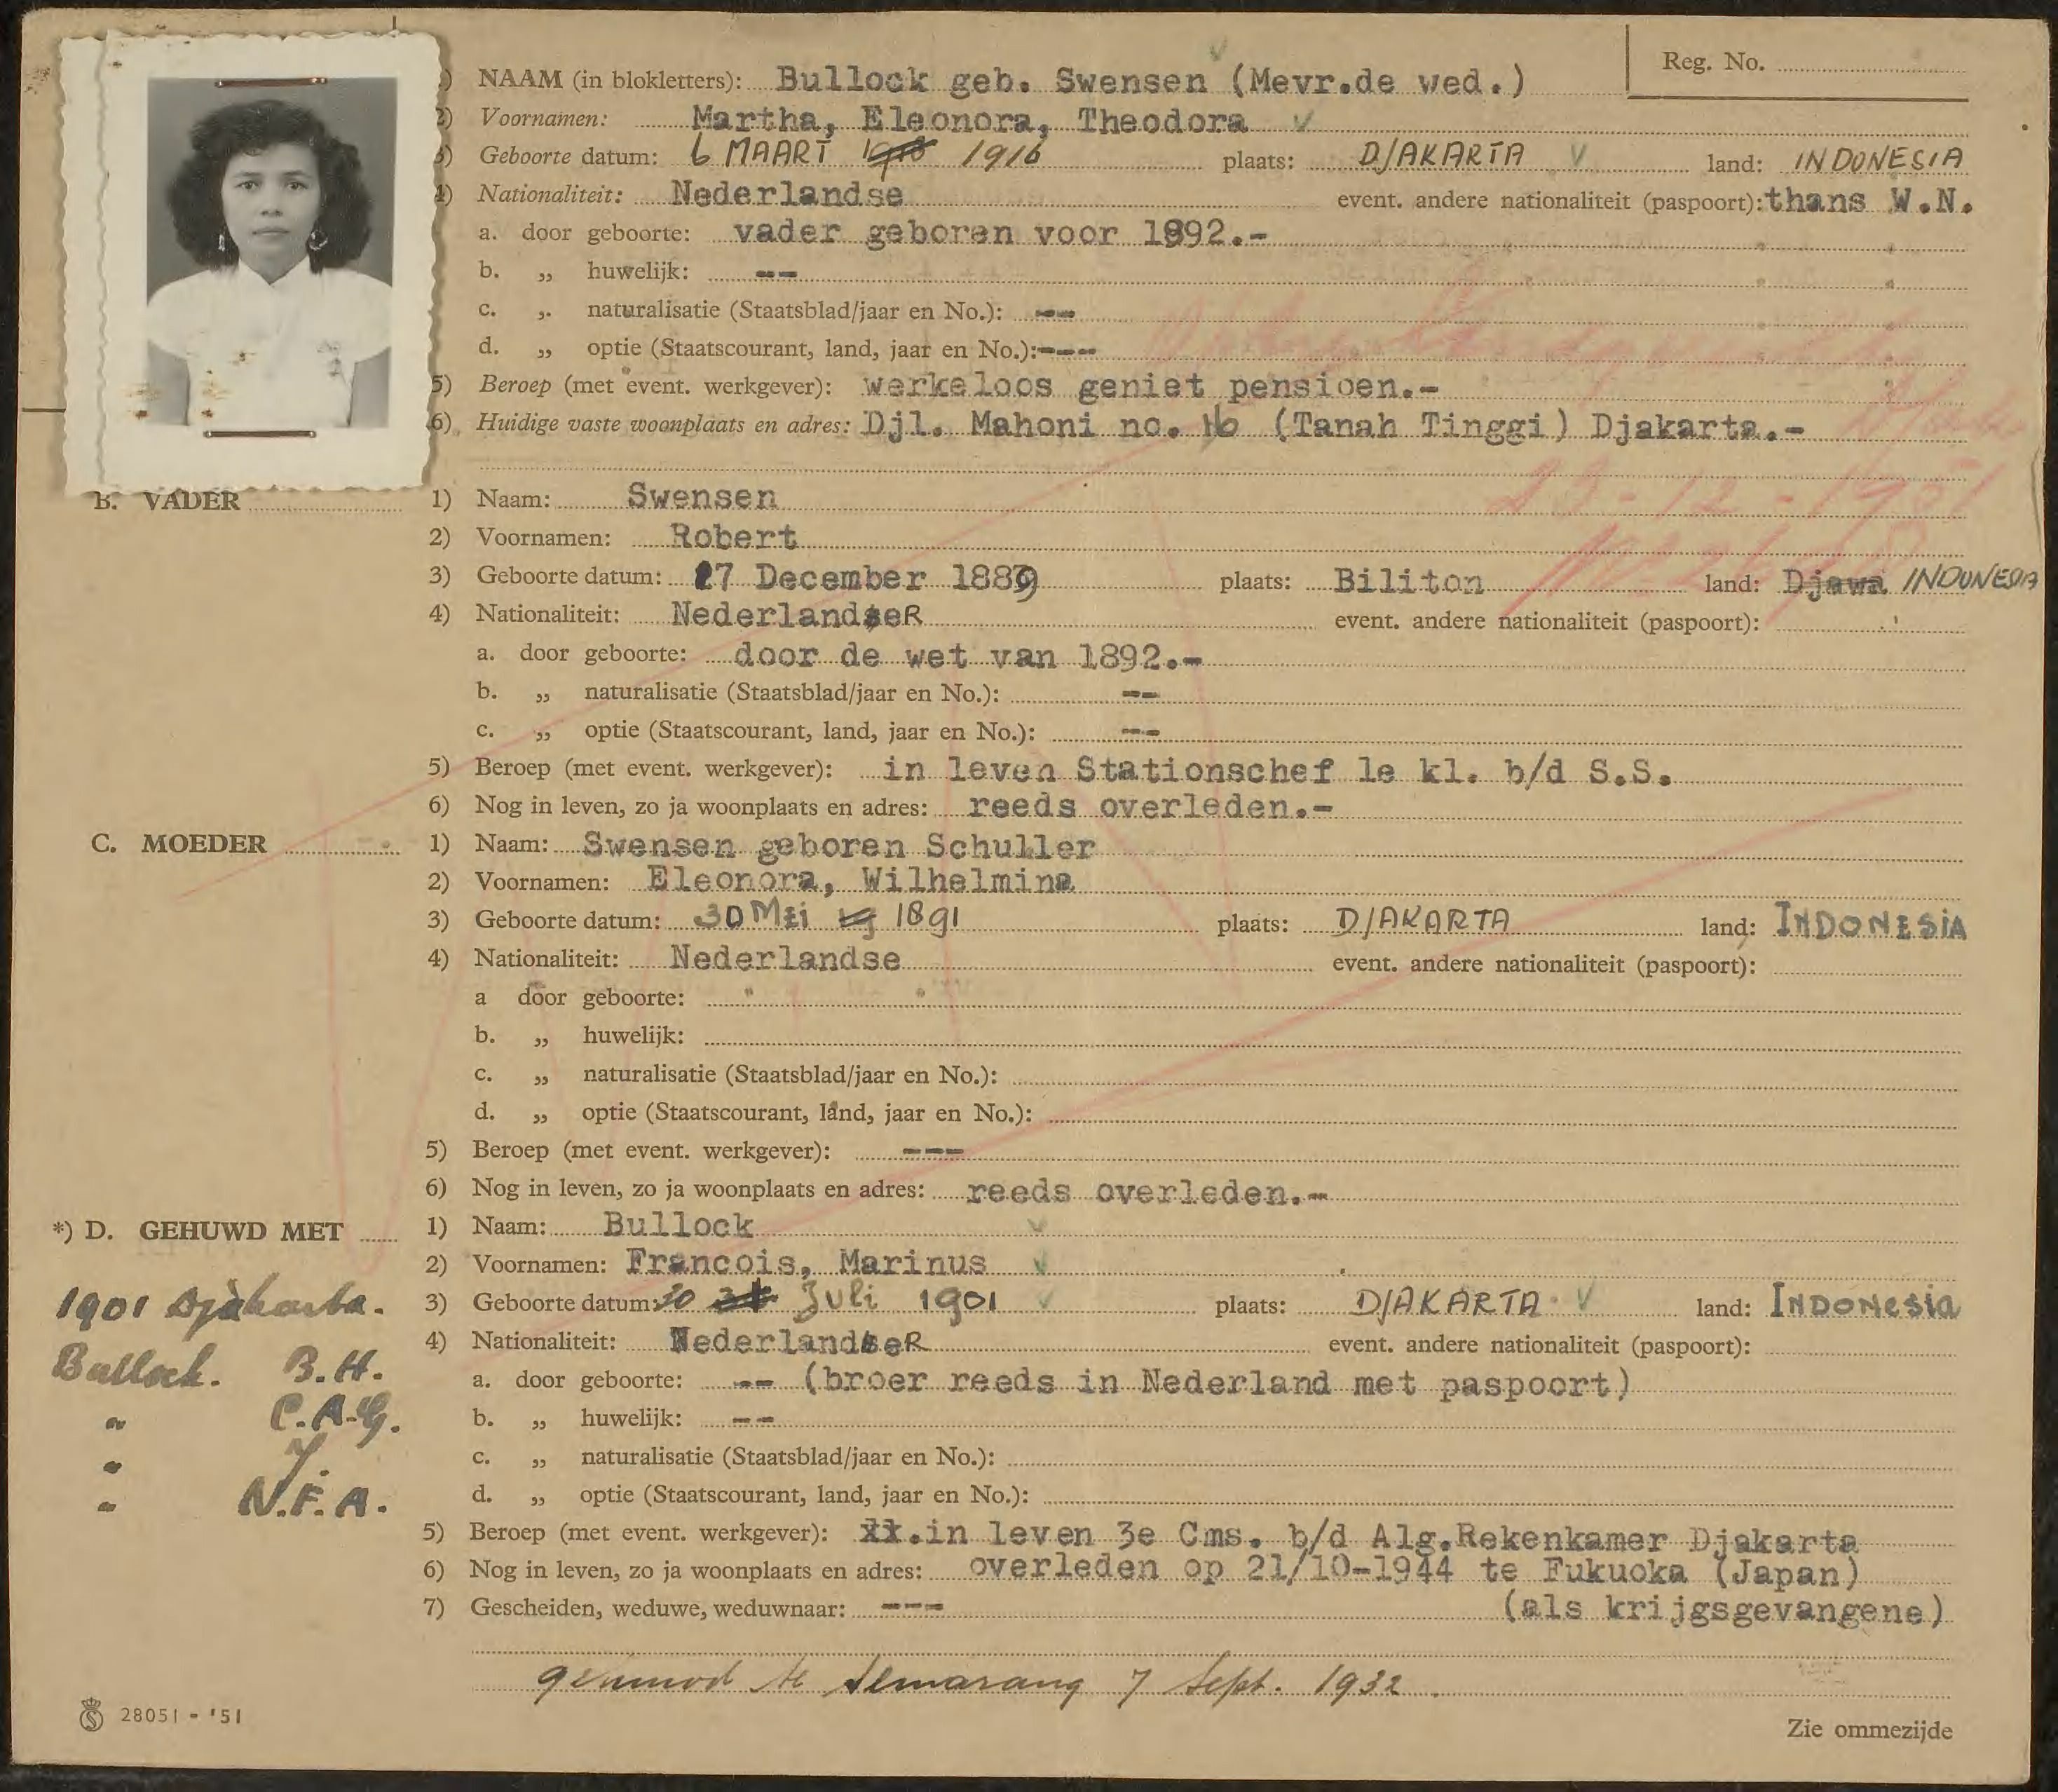 Reg. No.
1) NAAM (in blokletters): Bullock geb. Swensen (Mevr.de wed.)
2) Voornamen: Martha, Eleonora, Theodora
3) Geboorte datum: 6 MAART 1916 plaats: DJAKARTA land: INDONESIA
4) Nationaliteit: Nederlandse event. andere nationaliteit (paspoort): thans W.N.
a. door geboorte: vader geboren voor 1892.-
b. „ huwelijk: --
c. „ naturalisatie (Staatsblad/jaar en No.): --
d. „ optie (Staatscourant, land, jaar en No.):---
5) Beroep (met event. werkgever): werkeloos geniet pensioen.-
6) Huidige vaste woonplaats en adres: Djl. Mahoni no. (Tanah Tinggi) Djakarta.-
23-12-1951
B. VADER 1) Naam: Swensen
2) Voornamen: Robert
3) Geboorte datum: 27 December 1889 plaats: Biliton land: Djawa INDONESIA
4) Nationaliteit: NederlandseR event. andere nationaliteit (paspoort):
a. door geboorte: door de wet van 1892.-
b. „ naturalisatie (Staatsblad/jaar en No.): --
c. „ optie (Staatscourant, land, jaar en No.): --
5) Beroep (met event. werkgever): in leven Stationschef 1e kl. b/d S.S.
6) Nog in leven, zo ja woonplaats en adres: reeds overleden.-
C. MOEDER 1) Naam: Swensen geboren Schuller
2) Voornamen: Eleonora, Wilhelmina
3) Geboorte datum: 30 Mei 1891 plaats: DJAKARTA land: INDONESIA
4) Nationaliteit: Nederlandse event. andere nationaliteit (paspoort):
a door geboorte:
b. „ huwelijk:
c. „ naturalisatie (Staatsblad/jaar en No.):
d. „ optie (Staatscourant, land, jaar en No.):
5) Beroep (met event. werkgever): ---
6) Nog in leven, zo ja woonplaats en adres: reeds overleden.-
*) D. GEHUWD MET 1) Naam: Bullock
2) Voornamen: Francois, Marinus
1901 Djakarta. 3) Geboorte datum: 30 Juli 1901 plaats: DJAKARTA land: INDONESIA
4) Nationaliteit: NederlandseR event. andere nationaliteit (paspoort):
Bullock. B.H. a. door geboorte: -- (broer reeds in Nederland met paspoort)
" C.A.G. b. „ huwelijk: --
" J. c. „ naturalisatie (Staatsblad/jaar en No.):
" N.F.A. d. „ optie (Staatscourant, land, jaar en No.):
5) Beroep (met event. werkgever): xx.in leven 3e Cms. b/d Alg.Rekenkamer Djakarta
6) Nog in leven, zo ja woonplaats en adres: overleden op 21/10-1944 te Fukuoka (Japan)
7) Gescheiden, weduwe, weduwnaar: --- (als krijgsgevangene)
gehuwd te Semarang 7 Sept. 1932.
28051 - '51
Zie ommezijde